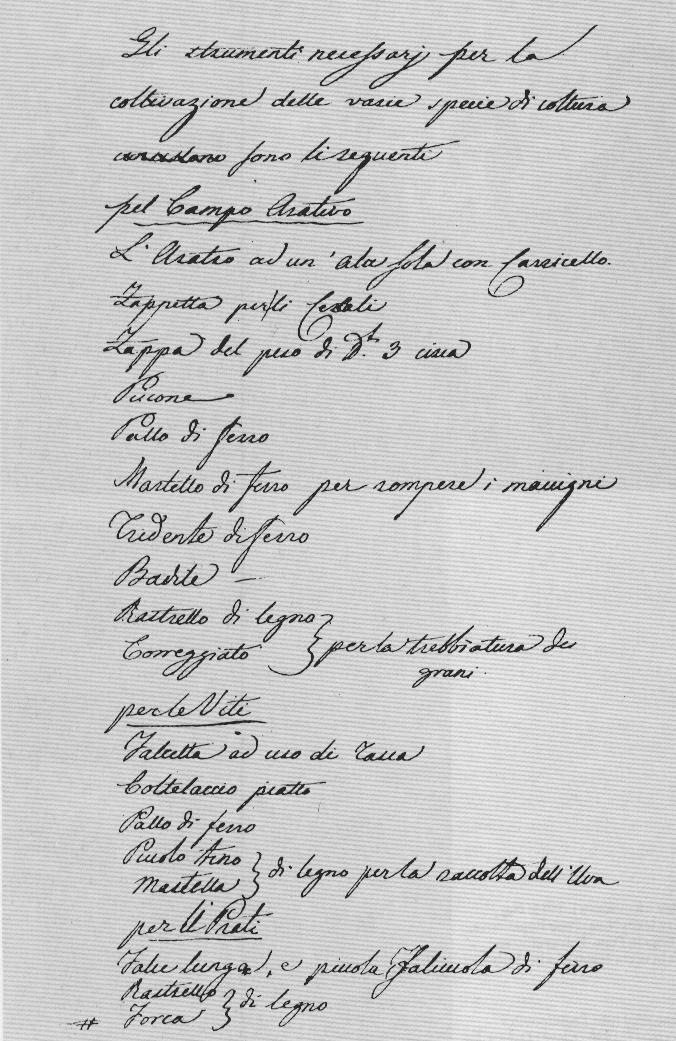 Gli strumenti necessarj per la
coltivazione delle varie specie di coltura
sono li seguenti
pel Campo Arativo
L'Aratro ad un'ala sola con Carricello.
Zappetta per li Cereali
Zappa del peso di 3 circa
Piccone
Pallo di ferro
Martello di ferro per rompere i macigni
Tridente di ferro
Badile —
Rastrello di legno
Correggiato } per la trebbiatura dei
grani.
per le Viti
Falcetta ad uso di
Coltelaccio piatto
Pallo di ferro
Piccolo tino
Mastella } di legno per la raccolta dell'Uva
per li Prati
Falce lunga, e piccola Falciuola di ferro
Rastrello
# Forca } di legno